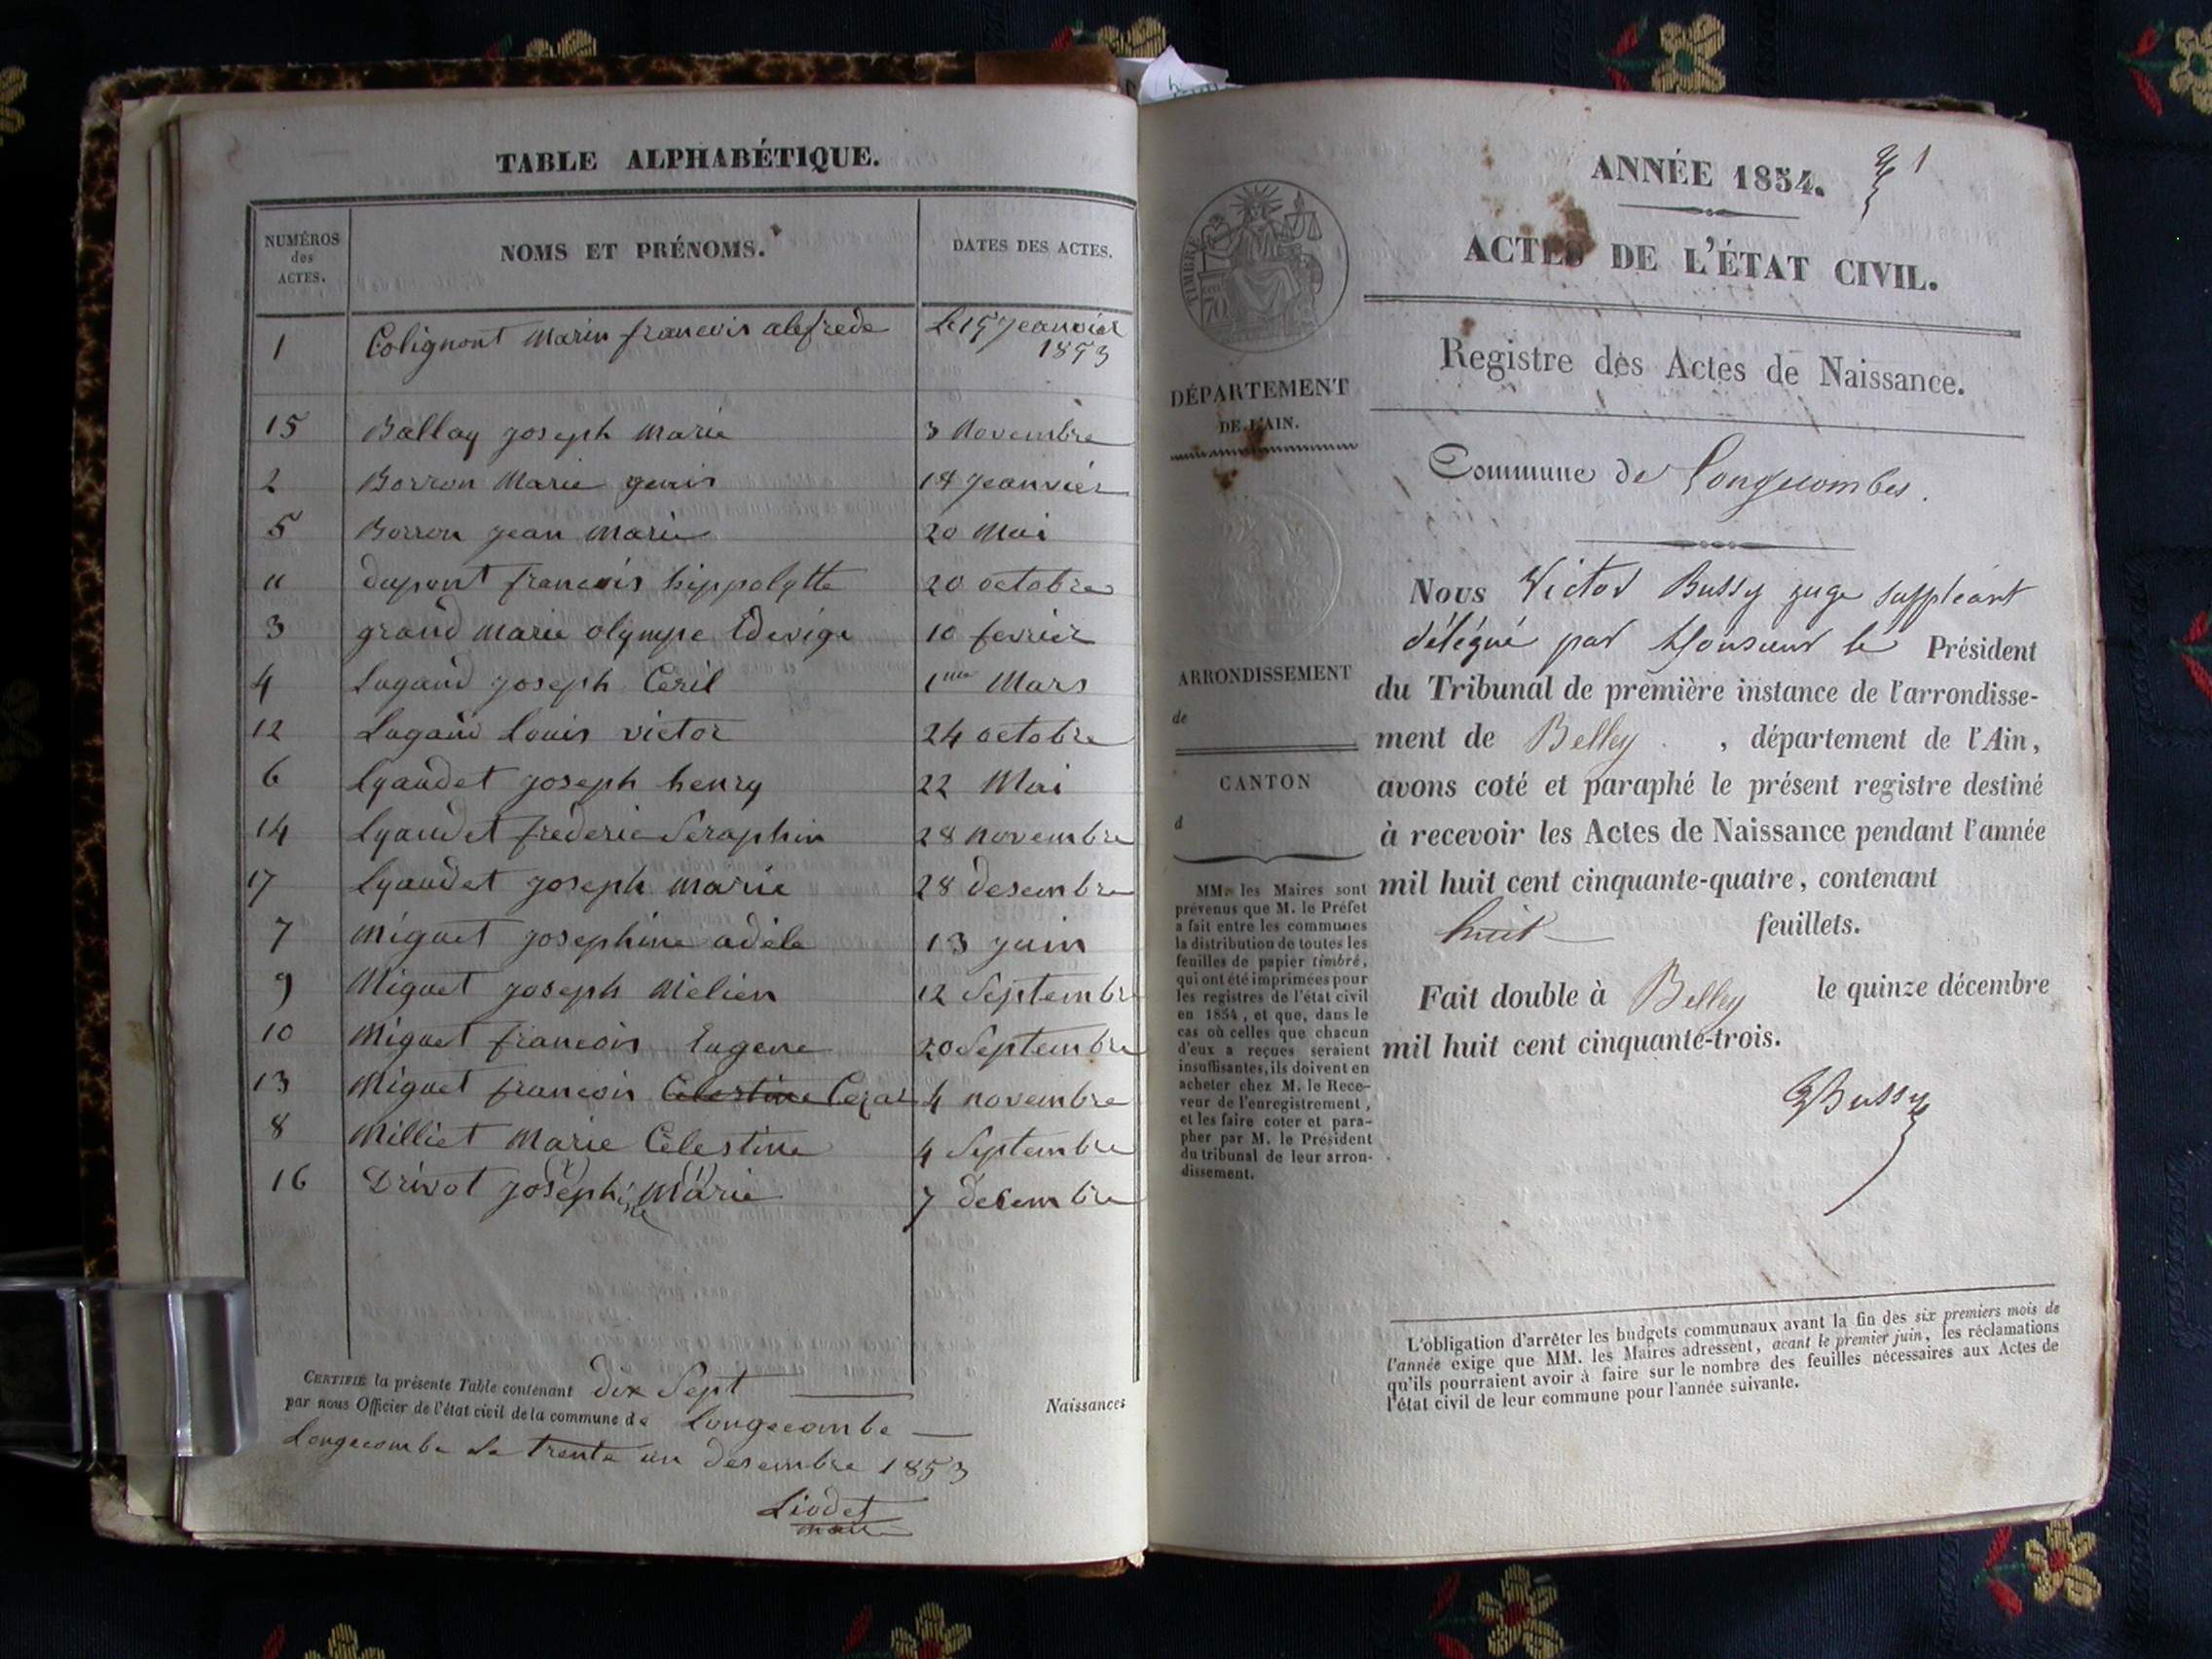 TABLE ALPHABÉTIQUE.
NUMÉROS des ACTES.
NOMS ET PRÉNOMS.
DATES DES ACTES.
1 Colignont Marin francois alefrede Le 15 Jeanvier 1853
15 Ballay joseph Marie 3 Novembre
2 Borron Marie 18 Jeanvier
5 Borron jean Marie 20 Mai
11 dupont francois hippolytte 20 octobre
3 grand marie olympe Edevige 10 fevrier
4 Lugand joseph Ceril 1er Mars
12 Lugand Louis victor 24 octobre
6 Lyaudet joseph henry 22 Mai
14 Lyaudet frederic Seraphin 28 novembre
17 Lyaudet joseph marie 28 desembre
7 Miguet josephine adèle 13 juin
9 Miguet joseph Mélien 12 Septembre
10 Miguet francois Eugene 20 Septembre
13 Miguet francois Celestine Cezar 4 novembre
8 Milliet Marie Célestine 4 Septembre
16 Drivot josephine Marie 7 decembre
CERTIFIÉ la présente Table contenant dix Sept Naissances
par nous Officier de l'état civil de la commune de Longecombe
Longecombe Le trente un desembre 1853
Liodet
maire
ANNÉE 1854. 1
ACTES DE L'ÉTAT CIVIL.
Registre des Actes de Naissance.
Commune de Longecombes.
TIMBRE
DÉPARTEMENT
DE L'AIN.
ARRONDISSEMENT
de
CANTON
d
MM. les Maires sont
prévenus que M. le Préfet
a fait entre les communes
la distribution de toutes les
feuilles de papier timbré,
qui ont été imprimées pour
les registres de l'état civil
en 1854, et que, dans le
cas où celles que chacun
d'eux a reçues seraient
insuffisantes, ils doivent en
acheter chez M. le Rece-
veur de l'enregistrement,
et les faire coter et para-
pher par M. le Président
du tribunal de leur arron-
dissement.
Nous Victor Bussy juge suppléant
délégué par Monsieur le Président
du Tribunal de première instance de l'arrondisse-
ment de Belley , département de l'Ain,
avons coté et paraphé le présent registre destiné
à recevoir les Actes de Naissance pendant l'année
mil huit cent cinquante-quatre, contenant
huit feuillets.
Fait double à Belley le quinze décembre
mil huit cent cinquante-trois.
Bussy
L'obligation d'arrêter les budgets communaux avant la fin des six premiers mois de
l'année exige que MM. les Maires adressent, avant le premier juin, les réclamations
qu'ils pourraient avoir à faire sur le nombre des feuilles nécessaires aux Actes de
l'état civil de leur commune pour l'année suivante.